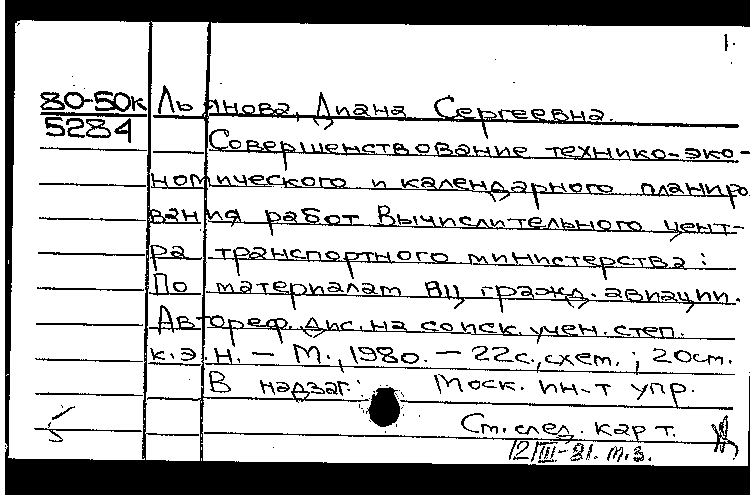 1.
80-50к Льянова, Диана Сергеевна.
5284
Совершенствование технико-эко-
номического и календарного планиро
вания работ Вычислительного цент-
ра транспортного министерства:
По материалам ВЦ гражд. авиации.
Автореф. дис. на соиск. учен. степ.
к.э.н. - М., 1980. - 22с., схем. ; 20см.
В надзаг.: Моск. ин-т упр.
См. след. карт.
12/III-81. м.з.